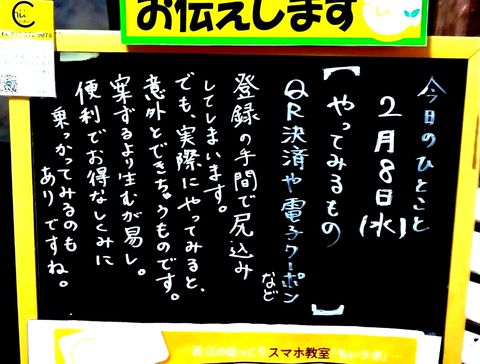 お伝えします
今日のひとこと
2月8日(水)
【やってみるもの】
QR決済や電子クーポン
など
登録の手間で尻込み
してしまいます。
でも、実際にやってみると、
意外とできちゃうものです。
案ずるより生むが易し。
便利でお得なしくみに
乗っかってみるのも
ありですね。
スマホ教室